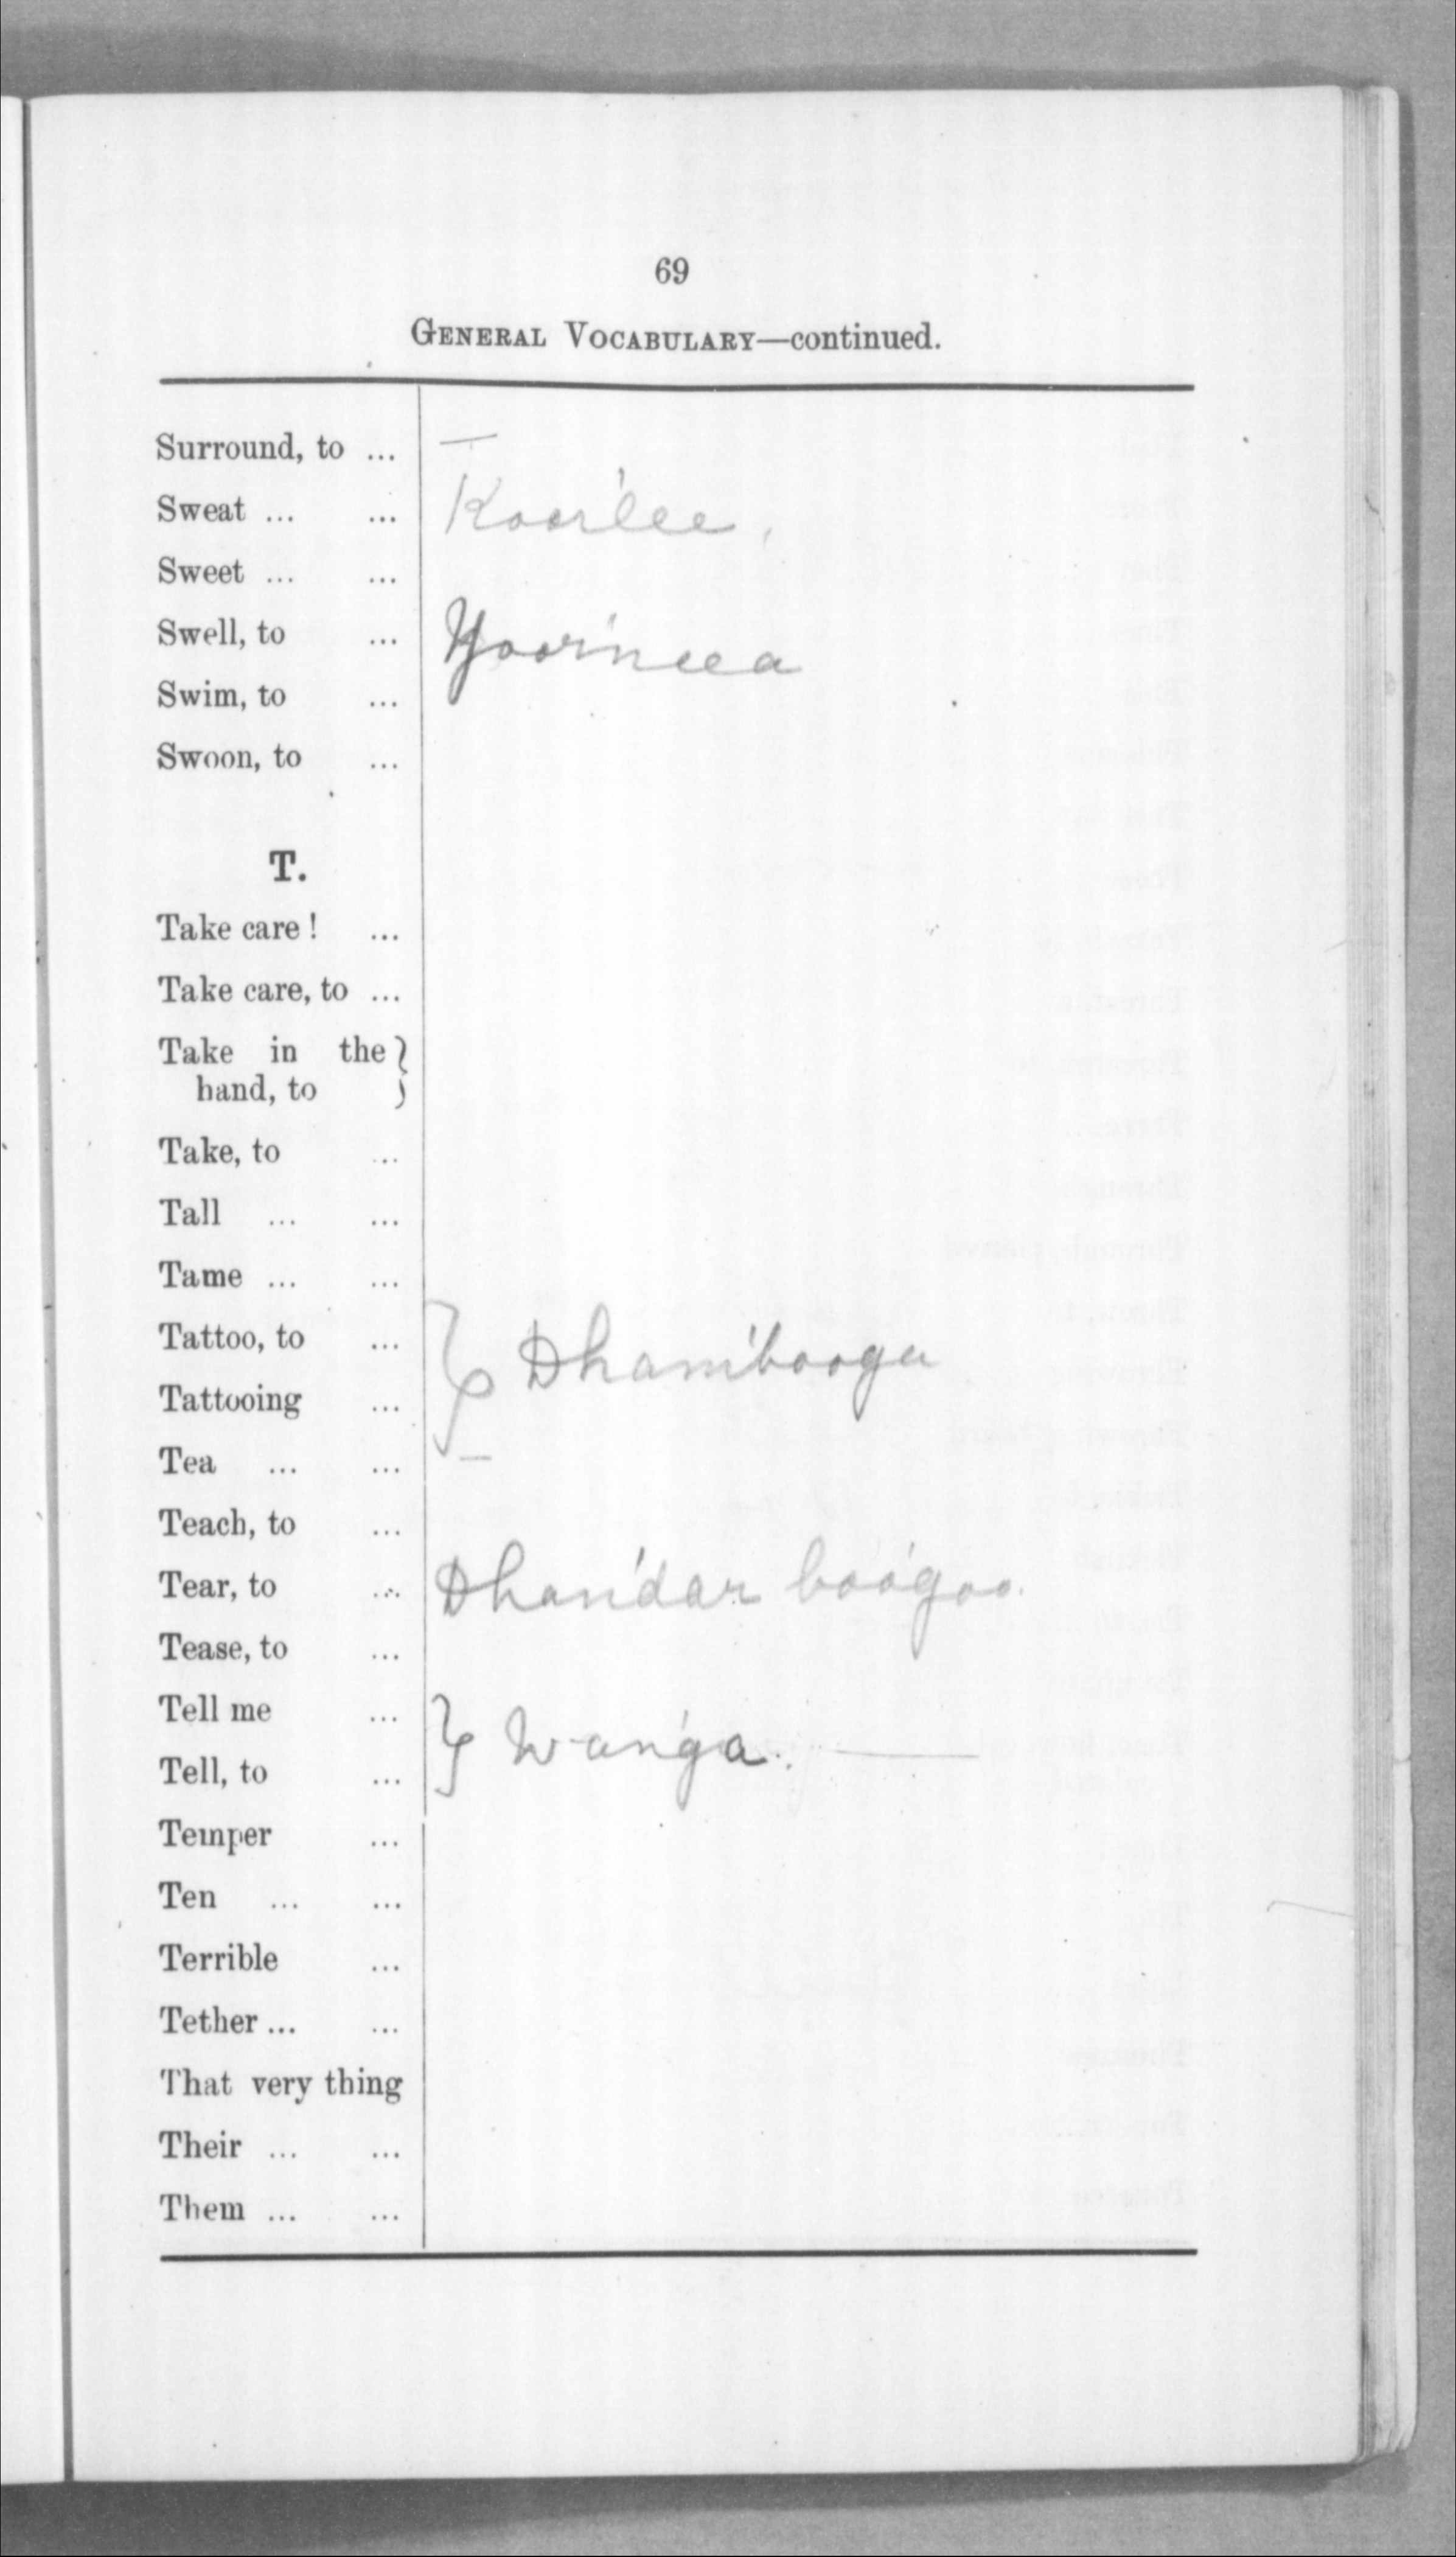 69
GENERAL VOCABULARY—continued.
Surround, to ... —
Sweat ... ... Koor'lee,
Sweet ... ...
Swell, to ... Yoor'neea
Swim, to ...
Swoon, to ...
T.
Take care! ...
Take care, to ...
Take in the }
hand, to }
Take, to ...
Tall ... ...
Tame ... ...
Tattoo, to ... } Dham'booga
Tattooing ...
Tea ... ... —
Teach, to ...
Tear, to ... Dhan'dar boo'goo.
Tease, to ...
Tell me ... } Wan'ga. —
Tell, to ...
Temper ...
Ten ... ...
Terrible ...
Tether ... ...
That very thing
Their ... ...
Them ... ...